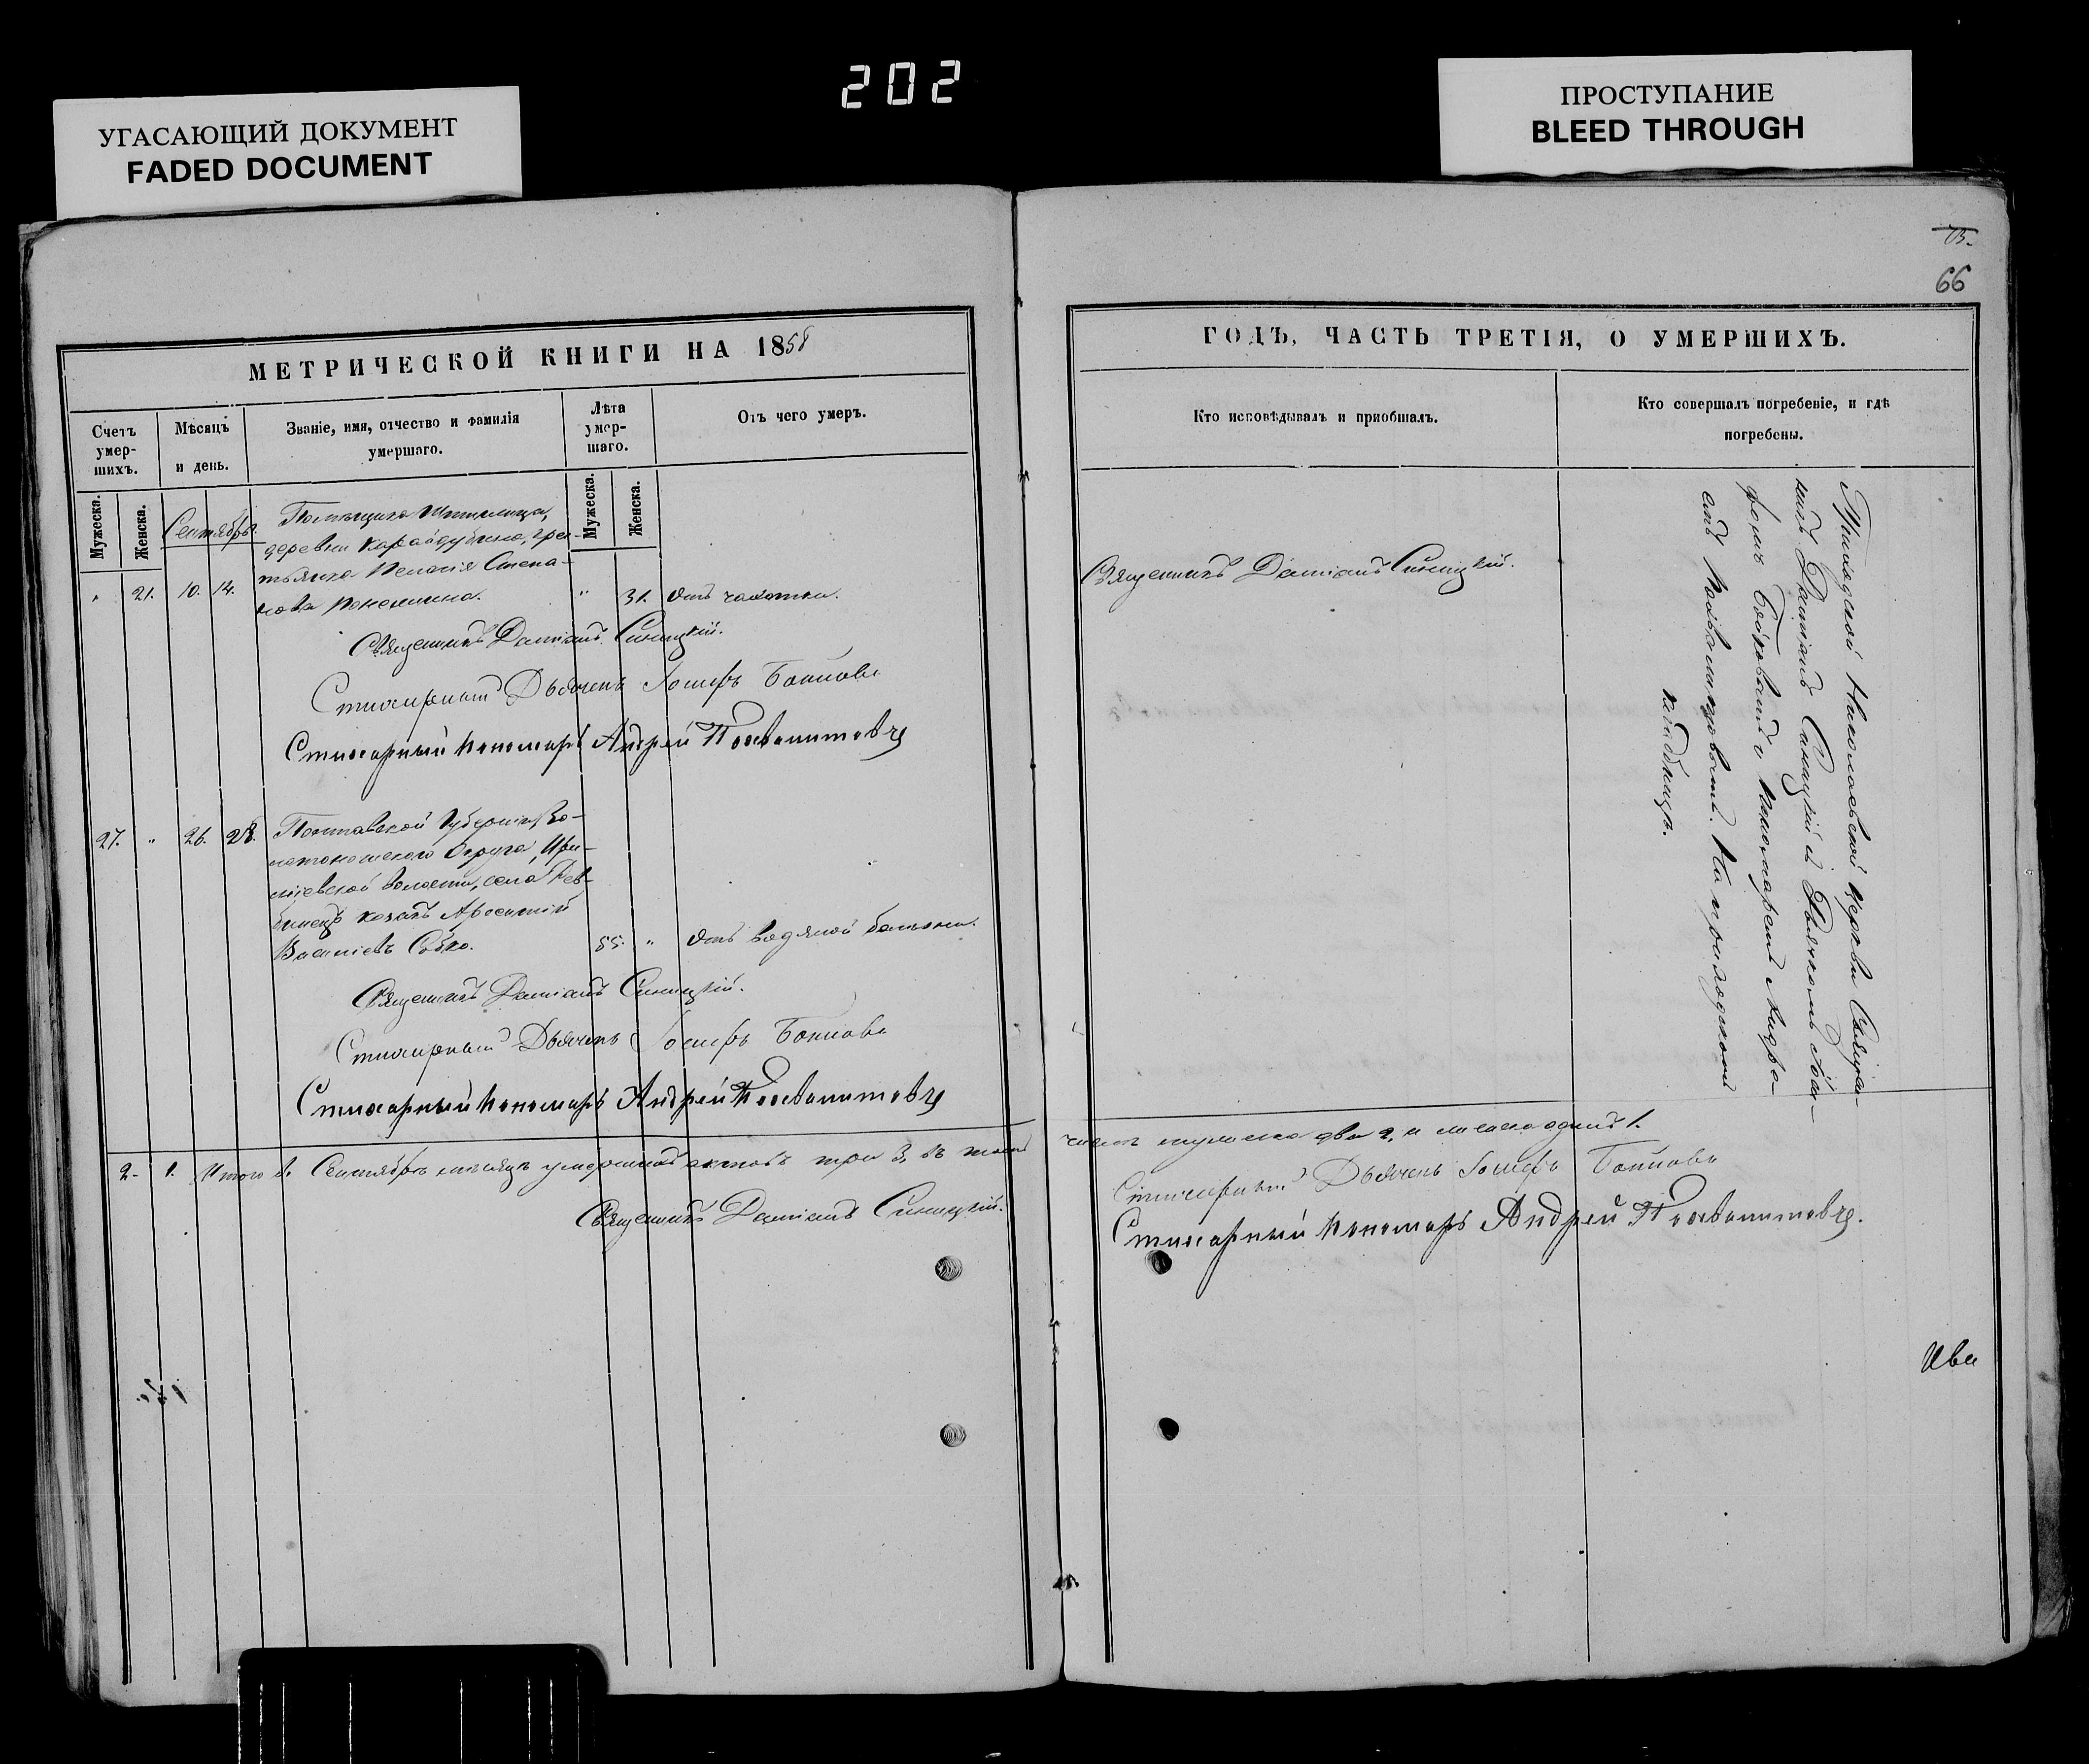 202
УГАСАЮЩИЙ ДОКУМЕНТ
FADED DOCUMENT
ПРОСТУПАНИЕ
BLEED THROUGH
73.
66
МЕТРИЧЕСКОЙ КНИГИ НА 1858
Счетъ умер-шихъ.
Мѣсяцъ и день.
Званіе, имя, отчество и фамилія умершаго.
Лѣта умер-шаго.
Отъ чего умеръ.
Мужеска.
Женска.
Мужеска.
Женска.
Сентябрь.
Помѣщика
деревни Карайдубина, крес-
тьянка Пелагія Степа-
нова
" 21. 10. 14. " 31. Отъ чахотки.
Священникъ Даміанъ Синицкій.
Стихарный Дьячекъ Іосифъ
Стихарный Пономарь Андрей
Полтавской Губерніи, Зо-
лотоношского Округа, Ири-
клѣевской волости, села
козакъ
Василіевъ Собко.
27. " 26. 28. 55. " Отъ водяной болѣзни.
Священникъ Даміанъ Синицкій.
Стихарный Дьячекъ Іосифъ
Стихарный Пономарь Андрей
2. 1. Итого въ Сентябрѣ мѣсяцѣ умершихъ три 3, въ томъ
Священникъ Даміанъ Синицкій.
ГОДЪ, ЧАСТЬ ТРЕТІЯ, О УМЕРШИХЪ.
Кто исповѣдывалъ и приобщалъ.
Кто совершалъ погребеніе, и гдѣ погребены.
Священникъ Даміанъ Синицкій.
Приходской Николаевской церкви Священ-
никъ Даміанъ Синицкій съ Дьячкомъ Іоси-
фомъ и Пономаремъ Андре-
емъ На приходскомъ
кладбищѣ.
числѣ мужеска два 2, и женска одинъ 1.
Стихарный Дьячекъ Іосифъ
Стихарный Пономарь Андрей
Ива